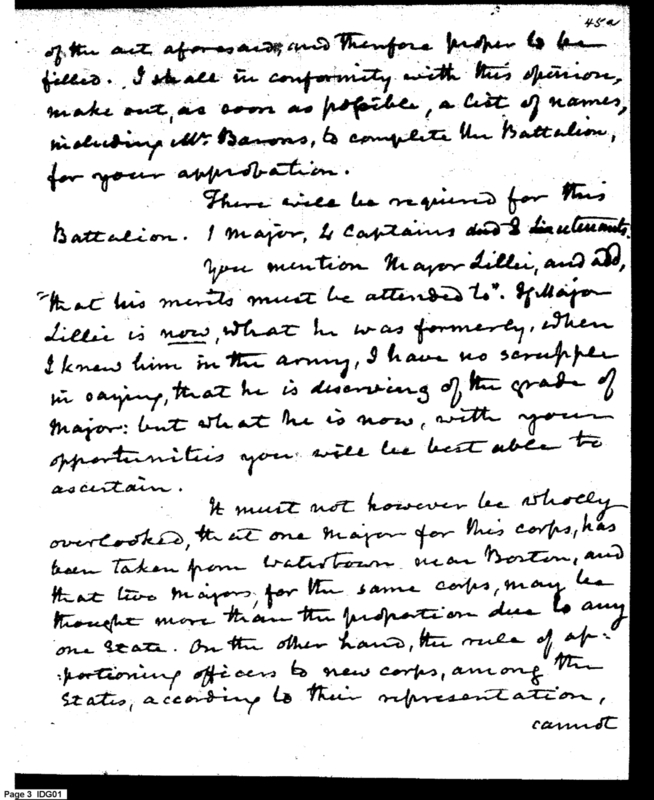 45a
of the act aforesaid; and therefore proper to be
filled. I shall in conformity with this opinion,
make out, as soon as possible, a list of names,
including Mr. Barons, to complete the Battalion,
for your approbation.
There will be required for this
Battalion. 1 Major, 4 Captains and 8 Lieutenants.
You mention Major Lillie, and add,
"that his merits must be attended to". If Major
Lillie is now, what he was formerly, when
I knew him in the army, I have no scrupple
in saying, that he is deserving of the grade of
Major: but what he is now, with your
opportunities you will be best able to
ascertain.
It must not however be wholly
overlooked, that one Major for this corps, has
been taken from Watertown near Boston, and
that two Majors, for the same corps, may be
thought more than the propotion due to any
one State. On the other hand, the rule of ap-:
:portioning officers to new corps, among the
States, according to their representation,
cannot
Page 3 IDG01